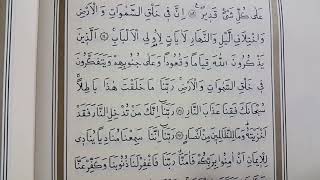 عَلَىٰ كُلِّ شَىْءٍ قَدِيرٌ ۝ إِنَّ فِى خَلْقِ السَّمَٰوَاتِ وَالْأَرْضِ
وَاخْتِلَافِ الَّيْلِ وَالنَّهَارِ لَآيَاتٍ لِأُولِى الْأَلْبَابِ ۝ الَّذِينَ
يَذْكُرُونَ اللَّهَ قِيَامًا وَقُعُودًا وَعَلَىٰ جُنُوبِهِمْ وَيَتَفَكَّرُونَ
فِى خَلْقِ السَّمَٰوَاتِ وَالْأَرْضِ رَبَّنَا مَا خَلَقْتَ هَٰذَا بَاطِلًا
سُبْحَانَكَ فَقِنَا عَذَابَ النَّارِ ۝ رَبَّنَا إِنَّكَ مَنْ تُدْخِلِ النَّارَ فَقَدْ
أَخْزَيْتَهُ وَمَا لِلظَّالِمِينَ مِنْ أَنْصَارٍ ۝ رَبَّنَا إِنَّنَا سَمِعْنَا مُنَادِيًا يُنَادِى
لِلْإِيمَانِ أَنْ آمِنُوا بِرَبِّكُمْ فَآمَنَّا رَبَّنَا فَاغْفِرْ لَنَا ذُنُوبَنَا وَكَفِّرْ عَنَّا